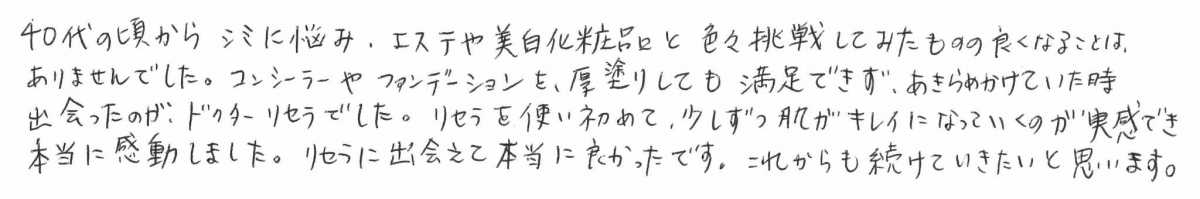 40代の頃からシミに悩み、エステや美白化粧品と色々挑戦してみたものの良くなることは、
ありませんでした。コンシーラーやファンデーションを、厚塗りしても満足できず、あきらめかけていた時
出会ったのが、ドクターリセラでした。リセラを使い初めて、少しずつ肌がキレイになっていくのが実感でき
本当に感動しました。リセラに出会えて本当に良かったです。これからも続けていきたいと思います。